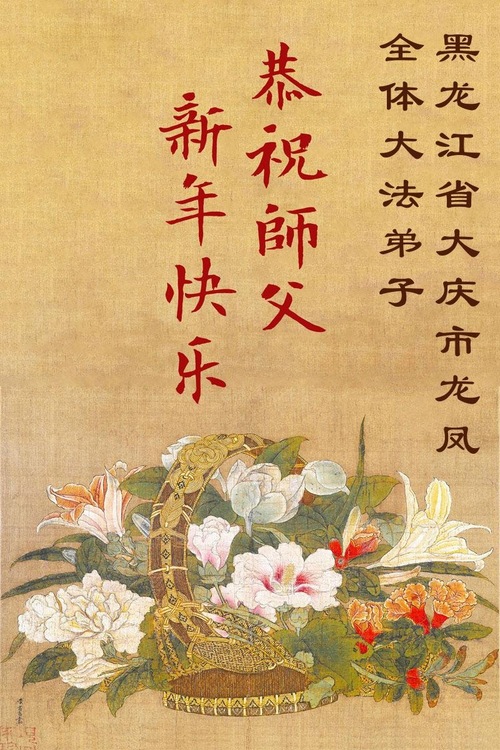 黑龙江省大庆市龙凤
全体大法弟子
恭祝師父
新年快乐